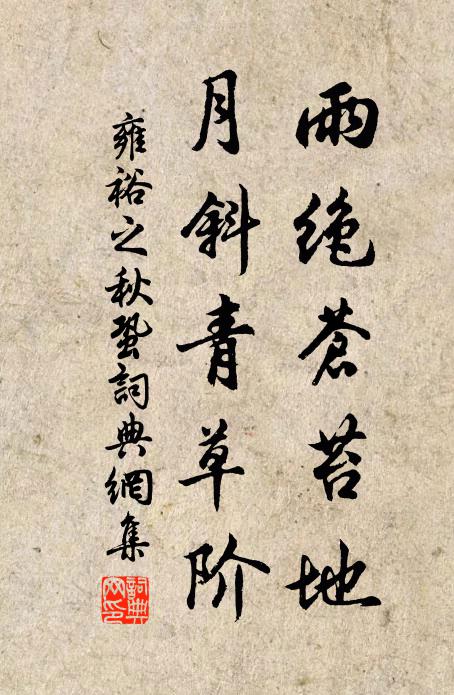 雨绝苍苔地
月斜青草阶
雍裕之秋蛩詞典網集
詞典网印